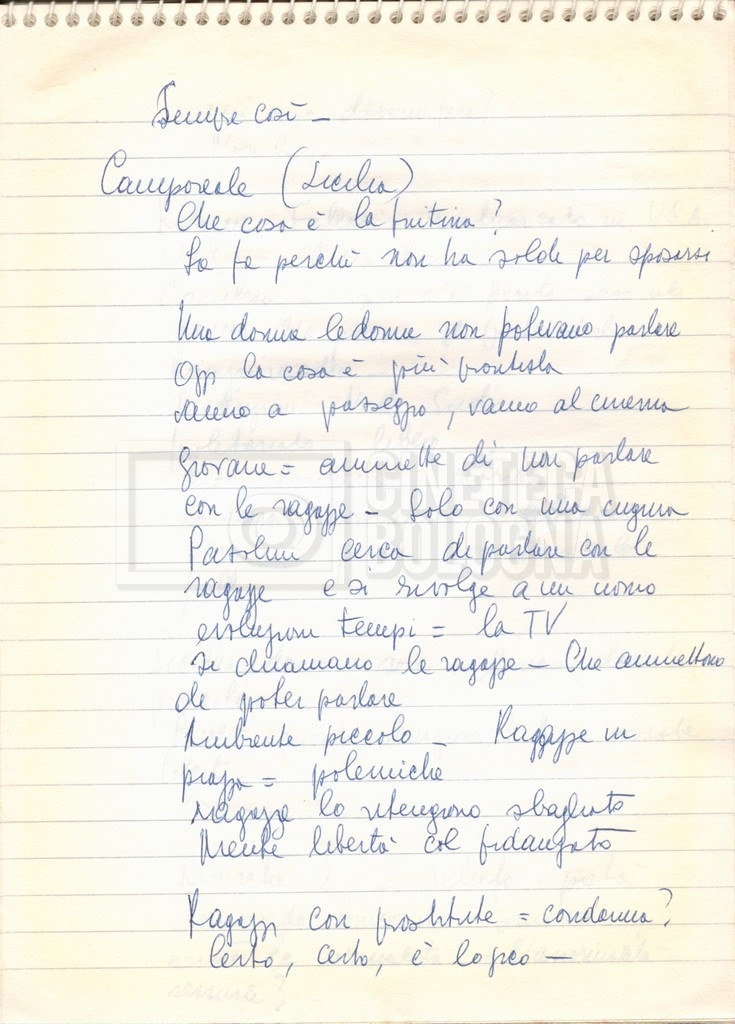 Sempre così –
Camporeale (Sicilia)
Che cosa è la fuitina?
La fa perchè non ha soldi per sposarsi
Una donna le donne non potevano parlare
Oggi la cosa è più
vanno a passeggio, vanno al cinema
giovane = ammette di non parlare
con le ragazze – Solo con una cugina
Pasolini cerca di parlare con le
ragazze e si rivolge a un uomo
evoluzioni tempi = la TV
Si chiamano le ragazze – Che ammettono
di poter parlare
Ambiente piccolo – Ragazze in
piazza = polemiche
ragazze lo ritengono sbagliato
Niente libertà col fidanzato
Ragazzi con prostitute = condanna?
Certo, certo, è logico –
CINETECA
BOLOGNA